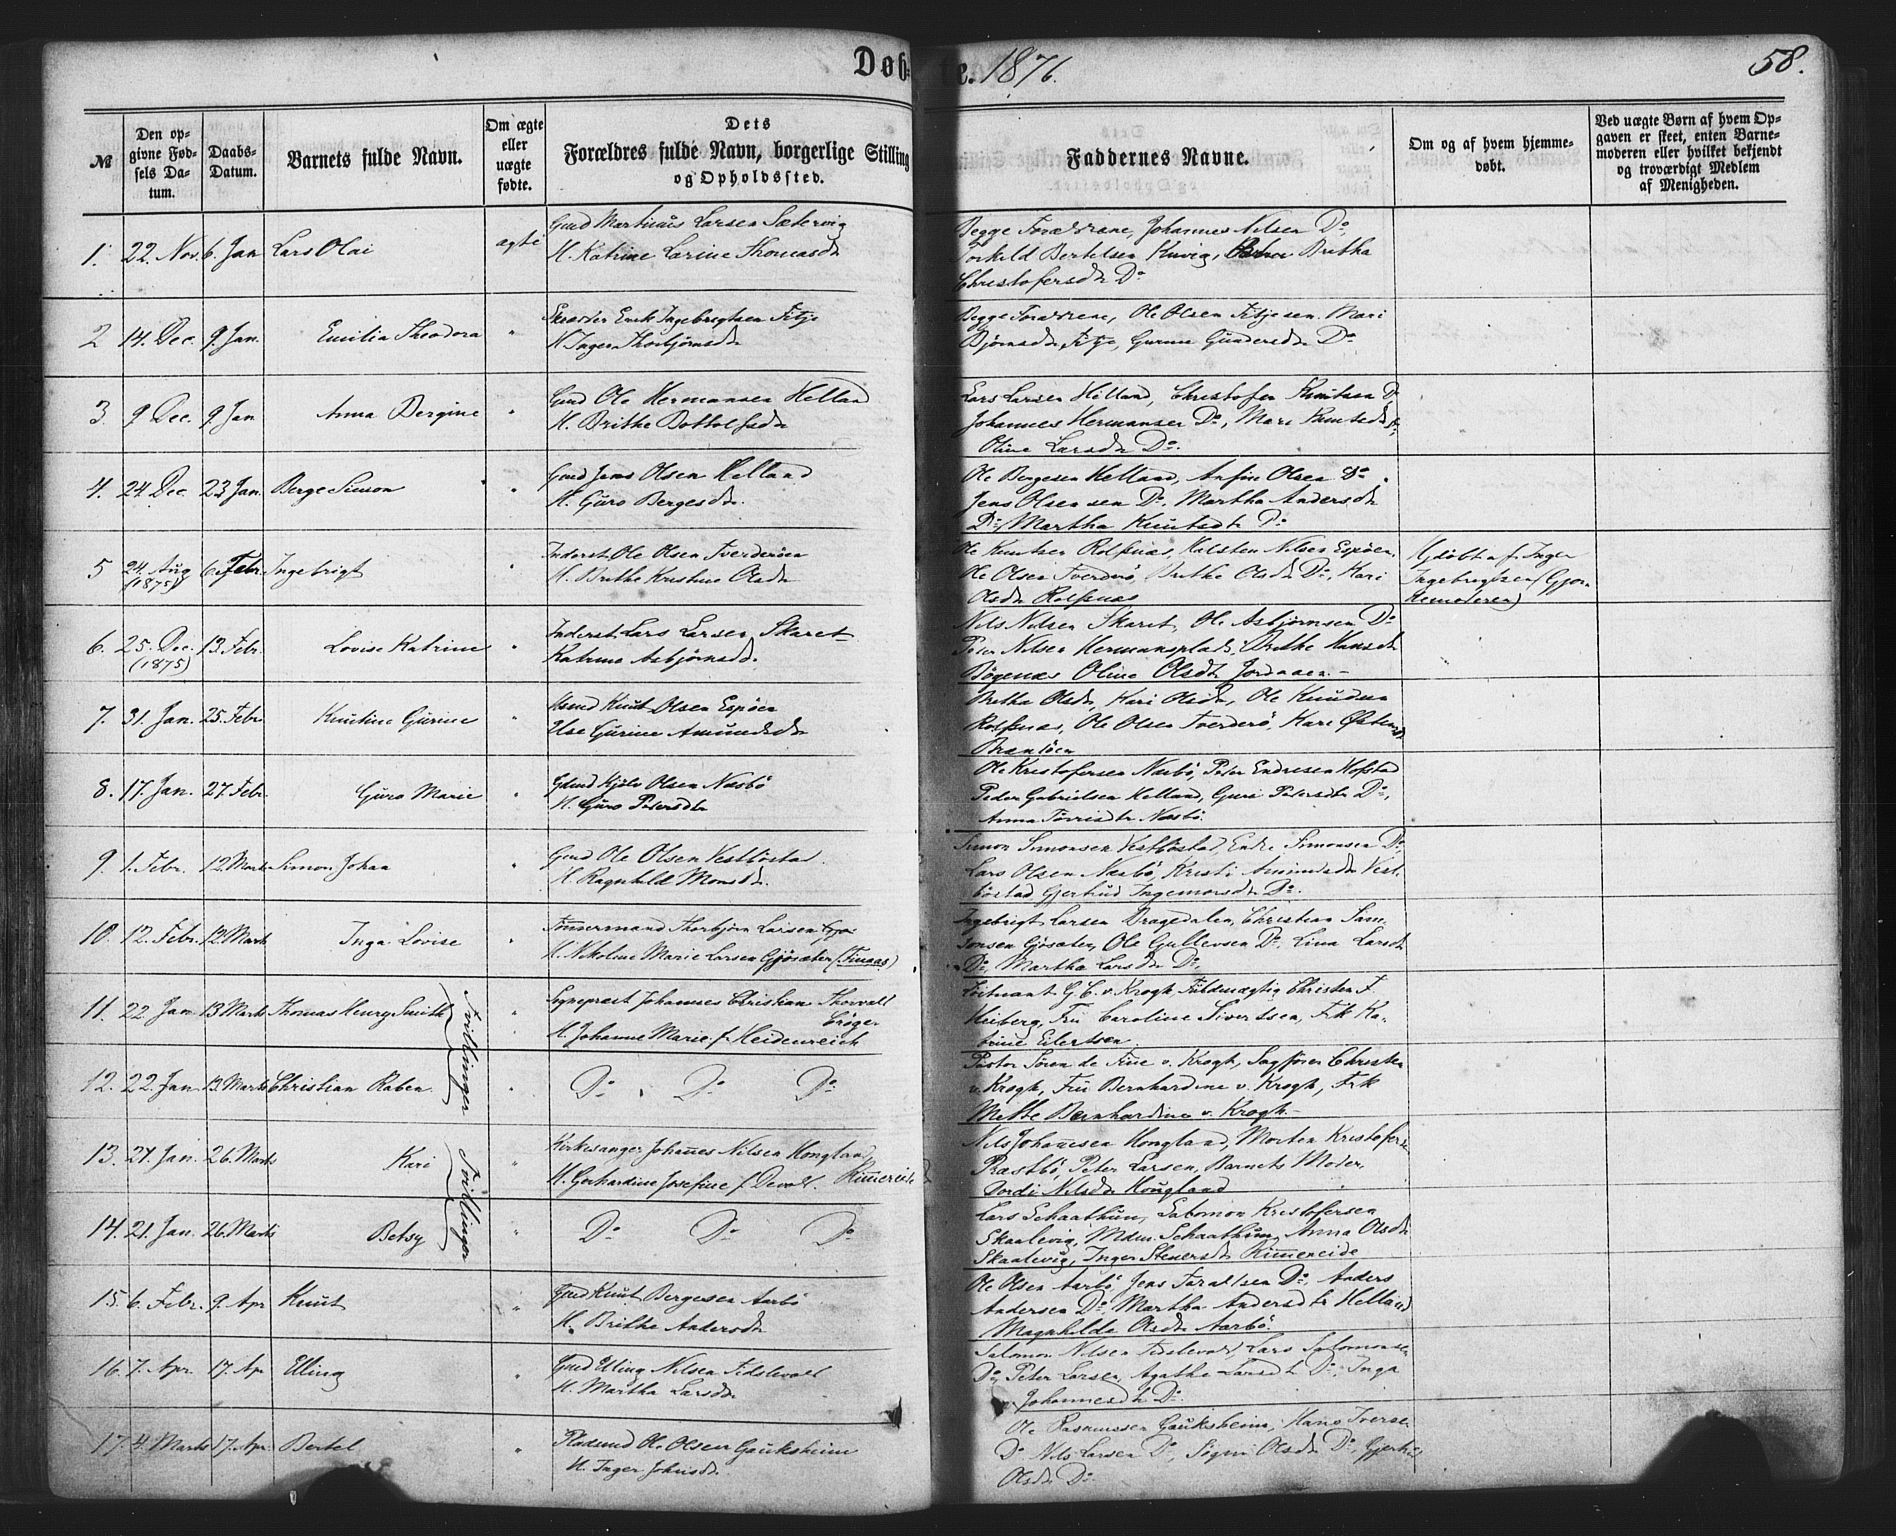 Døb- te. 1876. 58.
№
Den opgivne Fødsels Datum.
Daabs-Datum.
Barnets fulde Navn.
Om ægte eller uægte fødte.
Dets Forældres fulde Navn, borgerlige Stilling og Opholdssted.
Faddernes Navne.
Om og af hvem hjemmedøbt.
Ved uægte Børn af hvem Opgaven er skeet, enten Barnemoderen eller hvilket bekjendt og troværdigt Medlem af Menigheden.
1. 22. Nov. 6 Jan Lars Olai ægte
Gmd Martinus Larsen Sætervig
H. Katrine Larine Thomasdr
Begge Forældrene, Johannes Nilsen Do,
Torkild Bertelsen Kuvig, Bretha
Christofersdr Do
2 14. Dec. 9. Jan. Emilia Theodora "
Erik Ingebrigtsen Fitje
H Inger Thorbjørnsdr
Begge Forældrene, Ole Olsen Fitje sen. Mari
Bjørnsdr Fitje, Gurine Gundersdr Do
3. 9 Dec. 9 Jan Anna Bergine "
Gmd Ole Hermansen Helland
H. Brithe Bottolfsdr
Lars Larsen Helland, Christofer Knutsen Do
Johannes Hermansen Do, Mari Knutsdr Do,
Oline Larsdr Do.
4. 24. Dec. 23 Jan. Berge Simon "
Gmd Jens Olsen Helland
H. Guro Bergesdr.
Ole Bergesen Helland, Anfin Olsen Do.
Jens Olsen sen Do. Martha Andersdr
Do, Martha Knutsdtr Do
5 24. Aug (1875) 6. Febr. Ingebrigt "
Inderst Ole Olsen Tverderøen
H. Brithe Kristine Olsdr
Ole Knutsen Rolfsnæs, Halsten Nilsen Espøen,
Ole Olsen Tverderø, Brethe Olsdr Do, Kari
Olsdr Rolfsnæs
Hjdøbt af Inger
Ingebrigtsen (Gjor
demoderen)
6. 25. Dec. (1875) 13. Febr. Lovise Katrine "
Inderst Lars Larsen Skaret
Katrine Asbjørnsd.
Nils Nilsen Skaret, Ole Asbjørnsen Do
Peter Nilsen Hermansplads, Brethe Hansdr
Bøgenæs Oline Olsdtr Jordaaen.
7. 31. Jan. 25. Febr. Knutine Gurine "
Knut Olsen Espøen
Else Gurine Amundsdr
Bretha Olsdr, Kari Olsdr, Ole Knudsen
Rolfsnæs, Ole Olsen Tverderø, Kari Østensdr
8. 17. Jan. 27. Febr. Guro Marie "
Gmd Kjøl Olsen Næsbø
H. Guro Petersdtr
Ole Kristofersen Næsbø, Peter Endresen Hofstad
Peder Gabrielsen Helland, Guri Petersdtr Do,
Anna Torrisdtr Næsbø.
9. 1. Febr. 12. Marts Simon Johan "
Gmd Ole Olsen Vestbøstad
H. Ragnhild Monsdr.
Simon Simonsen Vestbøstad, Endre Simonsen Do
Lars Olsen Næsbø, Kristi Amundsdr Vest
bøstad Gjertrud Ingemorsdr Do.
10. 12. Febr. 12. Marts Inga Lovise "
Tømmermand Thorbjørn Larsen
H. Nikoline Marie Larsen Gjøsæter (Finaas)
Ingebrigt Larsen Dragedalen, Christian Sam
sonsen Gjøsæter, Ole Gullevsen Do. Lina Larsdr
Do, Martha Larsdr Do.
11. 22. Jan. 13 Marts Thomas Henry Smith "
Sognepræst Johannes Christian Thorvall
Crøger
H. Johanne Marie f. Heidenreich
Løitnant G. C. v. Krogh, Fuldmægtig Christen F.
Heiberg, Fru Caroline Sivertsen, Frk Ka-
trine Eilertsen.
Tvillinger
12. 22 Jan. 13 Marts Christian Raben "
Do Do Do
Pastor Søren de Fine v. Krogh, Sagfører Christen
v. Krogh, Fru Bernhardine v. Krogh, Frk
Mette Bernhardine v. Krogh.
13. 21. Jan. 26. Marts Kari "
Kirkesanger Johannes Nilsen Hougland,
H. Gerhardine Josefine f. Devold. Rimereide
Nils Johannesen Hougland, Morten Kristofersen
Præstbø, Peter Larsen, Barnets Moder,
Dordi Nilsdr Hougland
Tvillinger
14. 21. Jan. 26. Marts Betsy "
Do Do Do
Lars Schaathun, Salomon Kristofersen
Skaalevig, Mdm. Schaathun, Anna Olsdr
Skaalevig, Inger Steersdr Rimereide
15. 6. Febr. 9. Apr Knut "
Gmd Knut Bergesen Aarbø
H. Brithe Andersdr
Ole Olsen Aarbø, Jens Taraldsen Do, Anders
Andersen Do, Martha Andersdtr Helland
Magnhilde Olsdr Aarbø.
16. 7. Apr. 17. Apr Elling "
Gmd Elling Nilsen Fidslevoll
H. Martha Larsdr
Salomon Nilsen Fidslevol, Lars Salomonsen
Do, Peter Larsen, Agathe Larsdtr Do, Inga
Johannesdtr Do
17. 4. Marts 17. Apr. Bertel "
Pladsmd Ole Olsen Gauksheim
H. Inger Johnsdr
Ole Rasmussen Gauksheim, Hans Iversen
Do Nils Larsen Do, Sigri Olsdr Do, Gjertrud
Olsdr Do